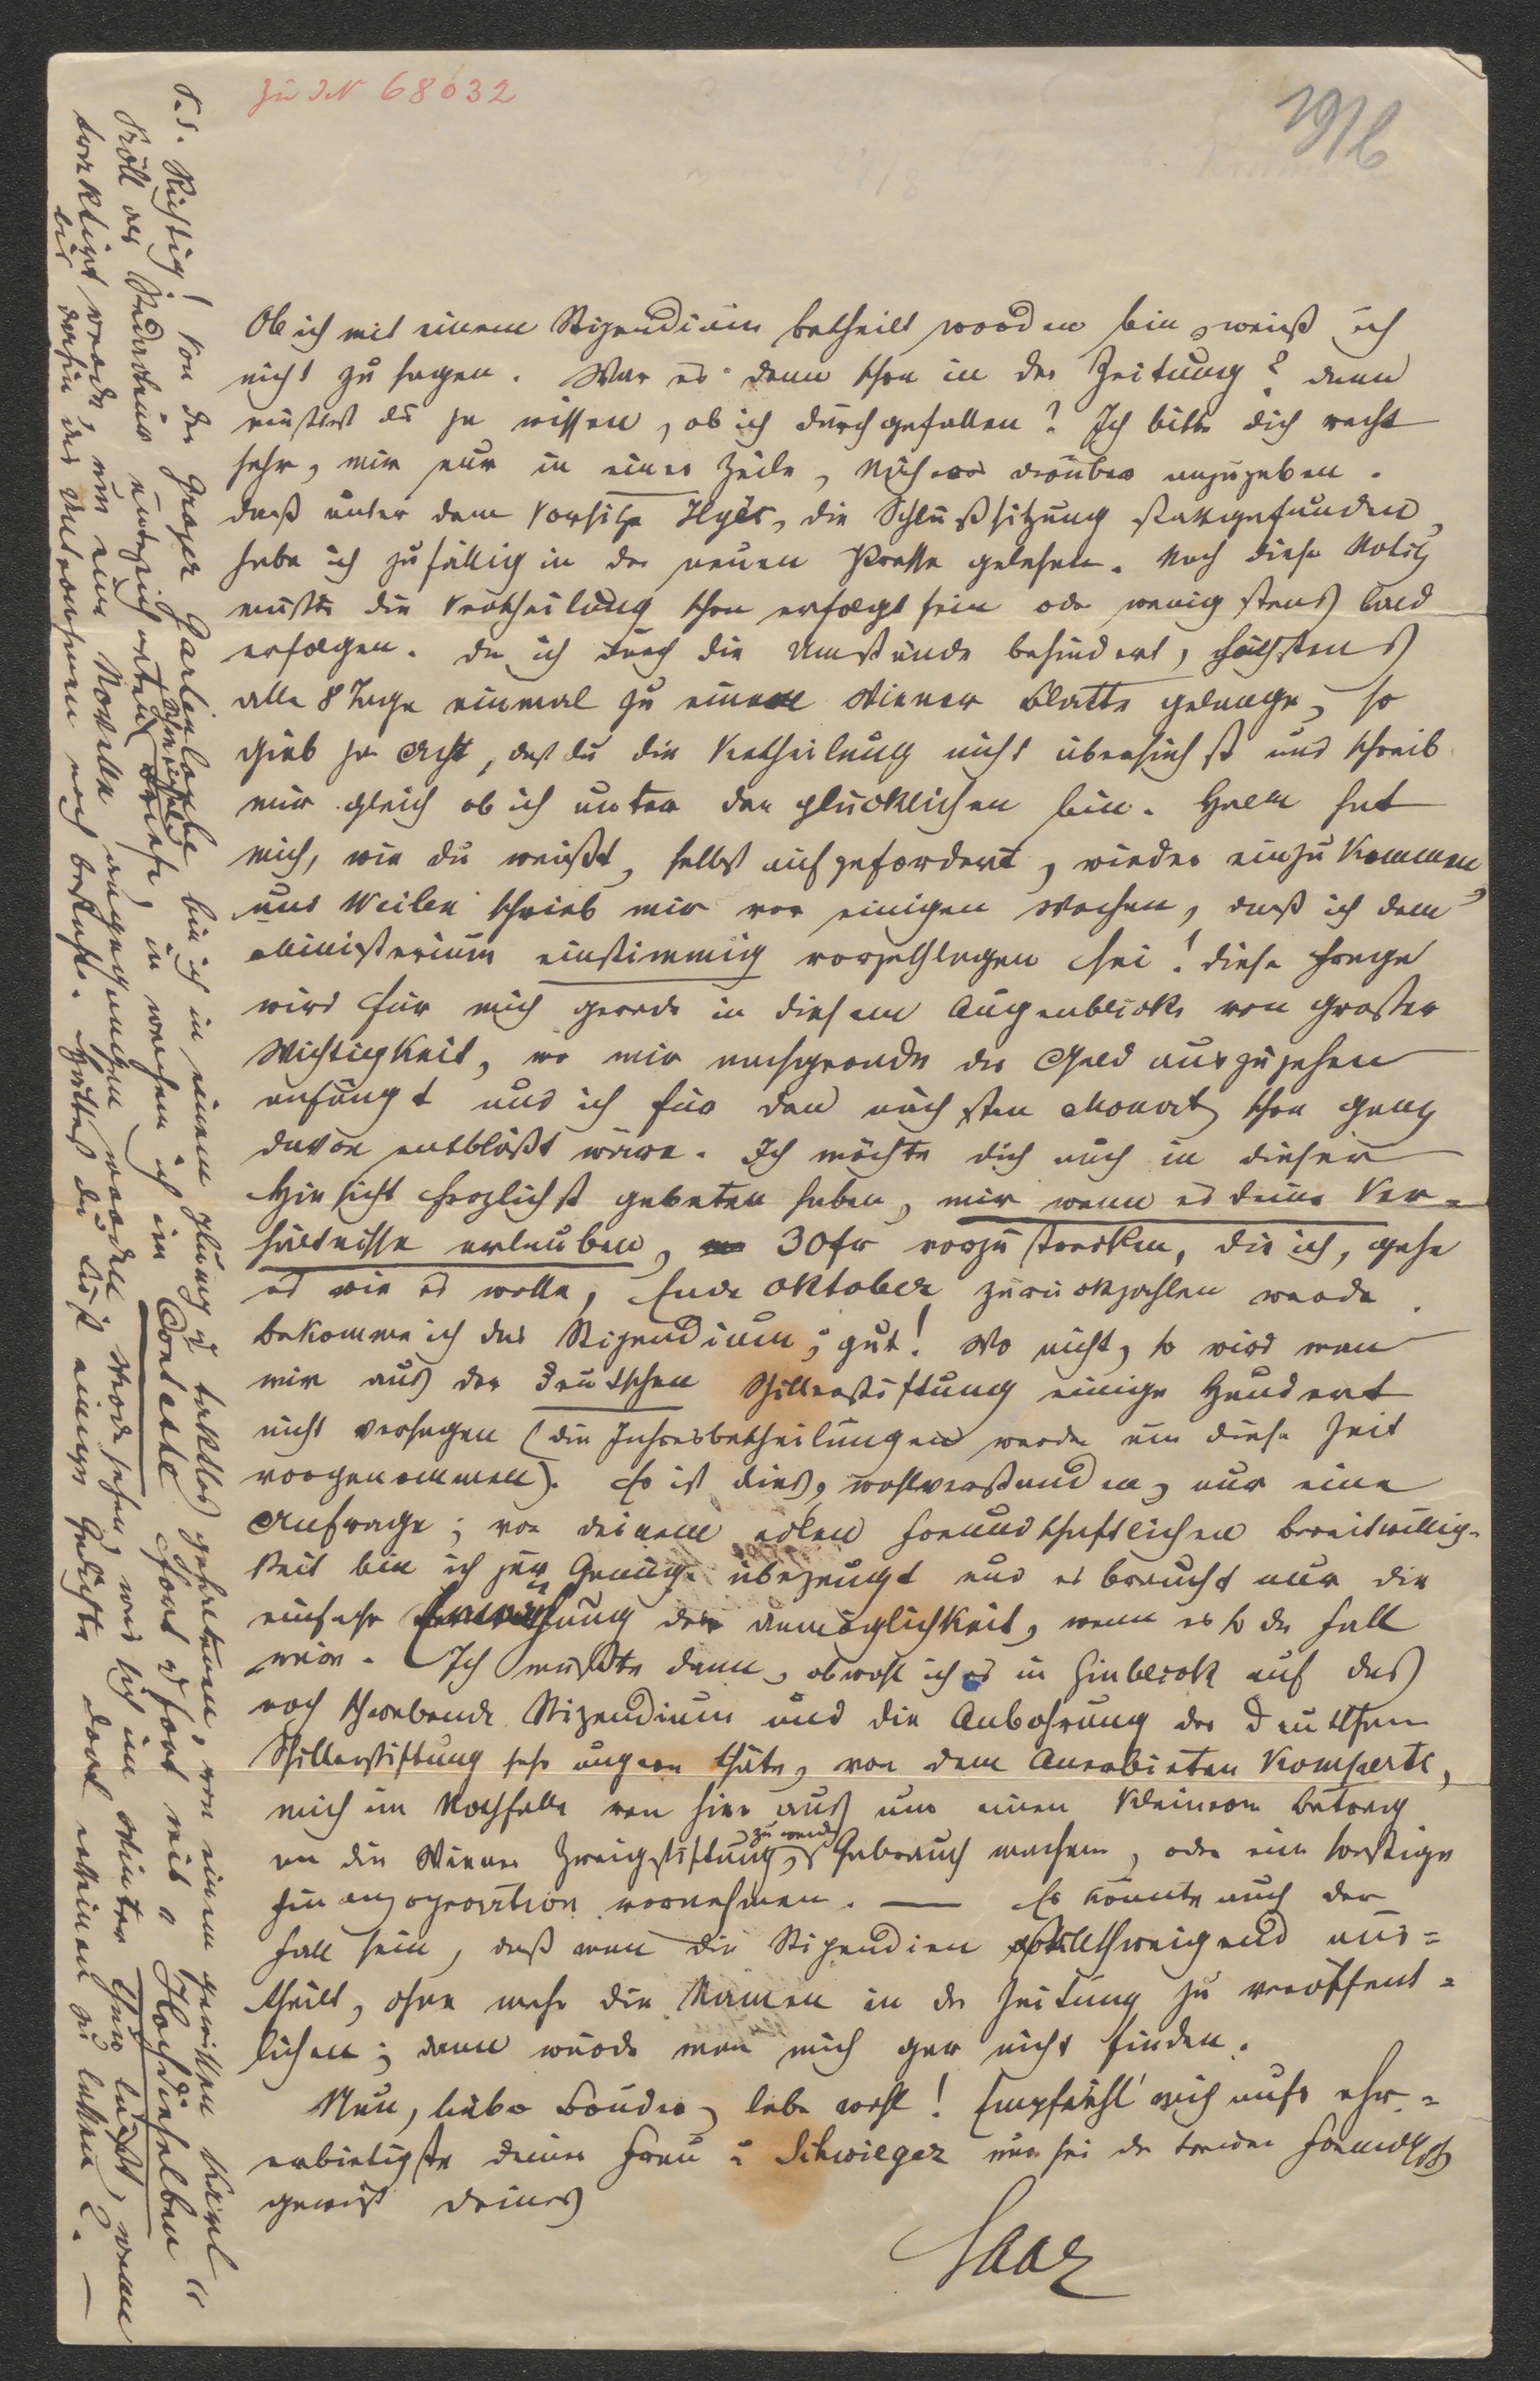 Zu IN 68032
1916
Ob ich mit einem Stipendium betheilt worden bin, weiß ich
nicht zu sagen. War es denn schon in der Zeitung? dann
müßtest du ja wissen, ob ich durchgefallen? Ich bitte dich recht
sehr, mir nur in einer Zeile, Näheres darüber anzugeben.
daß unter dem Vorsitze die Schlußsitzung stattgefunden,
habe ich zufällig in der neuen Presse gelesen. Nach dieser Notiz
müßte die Vertheilung schon erfolgt sein oder wenigstens bald
erfolgen. da ich durch die Umstände behindert, höchstens
alle 8 Tage einmal zu einem Wiener Blatte gelange, so
gieb ja Acht, daß du die Vertheilung nicht übersiehst und schreib
mir gleich ob ich unter den glücklichen bin. Halm hat
mich, wie du weißt, selbst aufgefordert, wieder einzukommen
und Weilen schrieb mir vor einigen Wochen, daß ich dem
Ministerium einstimmig vorgeschlagen sei! diese Frage
wird für mich gerade in diesem Augenblicke von großer
Wichtigkeit, wo mir nachgerade das Geld auszugehen
anfängt und ich für den nächsten Monat schon ganz
davon entblößt wäre. Ich möchte dich auch in dieser
Hinsicht herzlichst gebeten haben, mir wenn es deine Ver=
hältnisse erlauben, 30 fr vorzustrecken, die ich, gehe
es wie es wolle, Ende Oktober zurückzahlen werde.
bekomme ich das Stipendium, gut! Wo nicht, so wird man
mir aus der deutschen Schillerstiftung einige Hundert
nicht versagen (die Jahresbetheilungen werden um diese Zeit
vorgenommen). Es ist dies, wohlverstanden, nur eine
Anfrage; von deinem edlen freundschaftlichen bereitwillig-
keit bin ich zur Genüge überzeugt und es braucht nur die
einfache der Unmöglichkeit, wenn es so der Fall
wäre. Ich müßte dann, obwohl ich es in Hinblick auf das
noch schwebende Stipendium und die Anbohrung der Deutschen
Schillerstiftung sehr ungern thäte, von dem Anerbieten Komperts,
mich im Nothfalle von hier aus um einen kleineren Betrag
an die Wiener Zweigstiftung, zu wenden Gebrauch machen, oder eine sonstige
Finanzoperation vornehmen. — Es könnte auch der
Fall sein, daß man die Stipendien stillschweigend aus=
theilt, ohne mehr die Namen in der Zeitung zu veröffent=
lichen; dann würde man mich gar nicht finden.
Nun, lieber Bruder, lebe wohl! Empfiehl mich aufs ehr=
erbietigste deiner Frau u Schwieger und sei der treuen Freundschft
gewiß deines
Saar
P.S. Richtig! Von der Grazer Gartenlaube bin ich in einem und taktlos gehaltenen, von einem gewissen Karl
Pröll als Redakteur unterzeichneten Briefe, in welchem ich im Contexte fort u fort mit „Hochdieselben“
traktirt werde, um eine Novelle angegangen worden. Werde sehen, was sich im Winter thun läßt, wenn
bis dahin das Unternehmen noch besteht. Hättest du Lust einige Gedichte dort erscheinen zu lassen? —